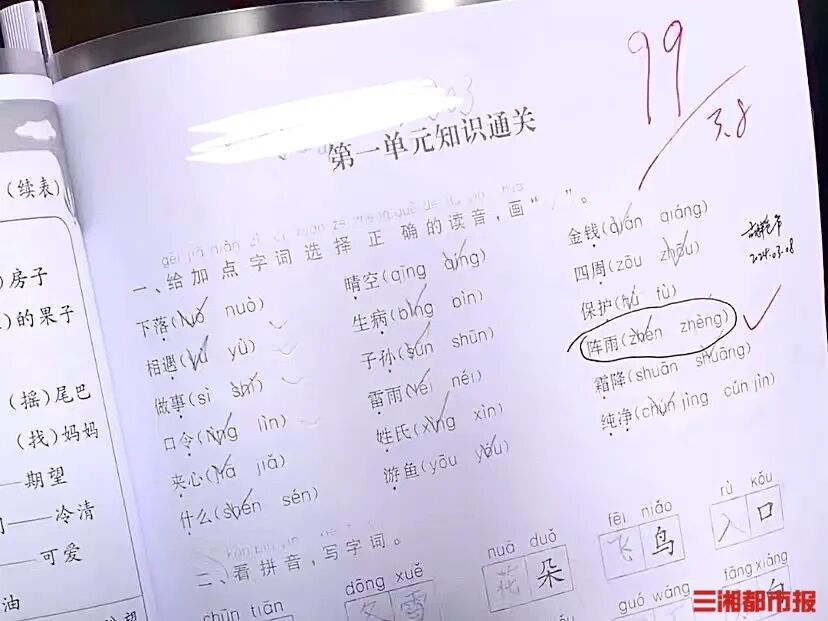 (续表)
房子
的果子
(摇)尾巴
(找)妈妈
期望
冷清
可爱
油
99
3.8
第一单元知识通关
一、给加点字词选择正确的读音,画“ ”。
下落( nuò)
相遇( yù)
做事(sì shì)
口令(lìng lìn)
夹心(jiā jiǎ)
什么(shén sén)
晴空(qīng qíng)
生病(bìng pìn)
子孙(sūn shūn)
雷雨(léi néi)
姓氏(xìng xìn)
游鱼(yōu yóu)
金钱(qián qiáng)
四周(zōu zhōu)
保护(hù fù)
阵雨(zhèn zhèng)
霜降(shuān shuāng)
纯净(chún jìng cún jìn)
2024.03.08
二、看拼音,写字词。
chūn tiān
dōng xuě
冬雪
huā duǒ
花朵
fēi niǎo
飞鸟
rù kǒu
入口
guó wáng
fāng xiàng
三湘都市报